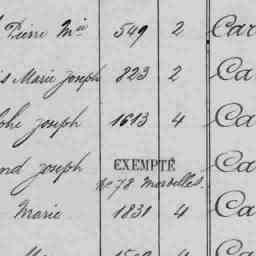 Pierre Mie 549 2 Car
is Marie Joseph 823 2 Ca
phe Joseph 1613 4 Ca
nd Joseph EXEMPTÉ Ca
No 78
Marie 1831 4 Ca